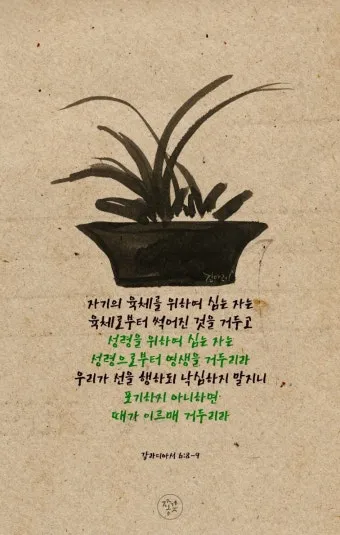 자기의 육체를 위하여 심는 자는
육체로부터 썩어진 것을 거두고
성령을 위하여 심는 자는
성령으로부터 영생을 거두리라
우리가 선을 행하되 낙심하지 말지니
포기하지 아니하면
때가 이르매 거두리라
갈라디아서 6:8-9